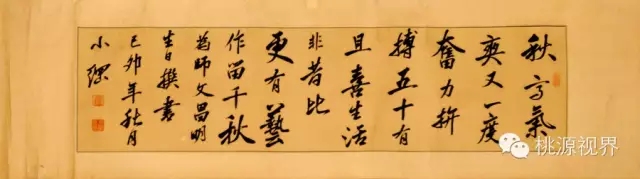 秋高氣
爽又一度
奮力拚
搏五十有
且喜生活
非昔比
更有藝
作留千秋
為師文昌明
生日撰書
己卯年秋月
小
桃源视界